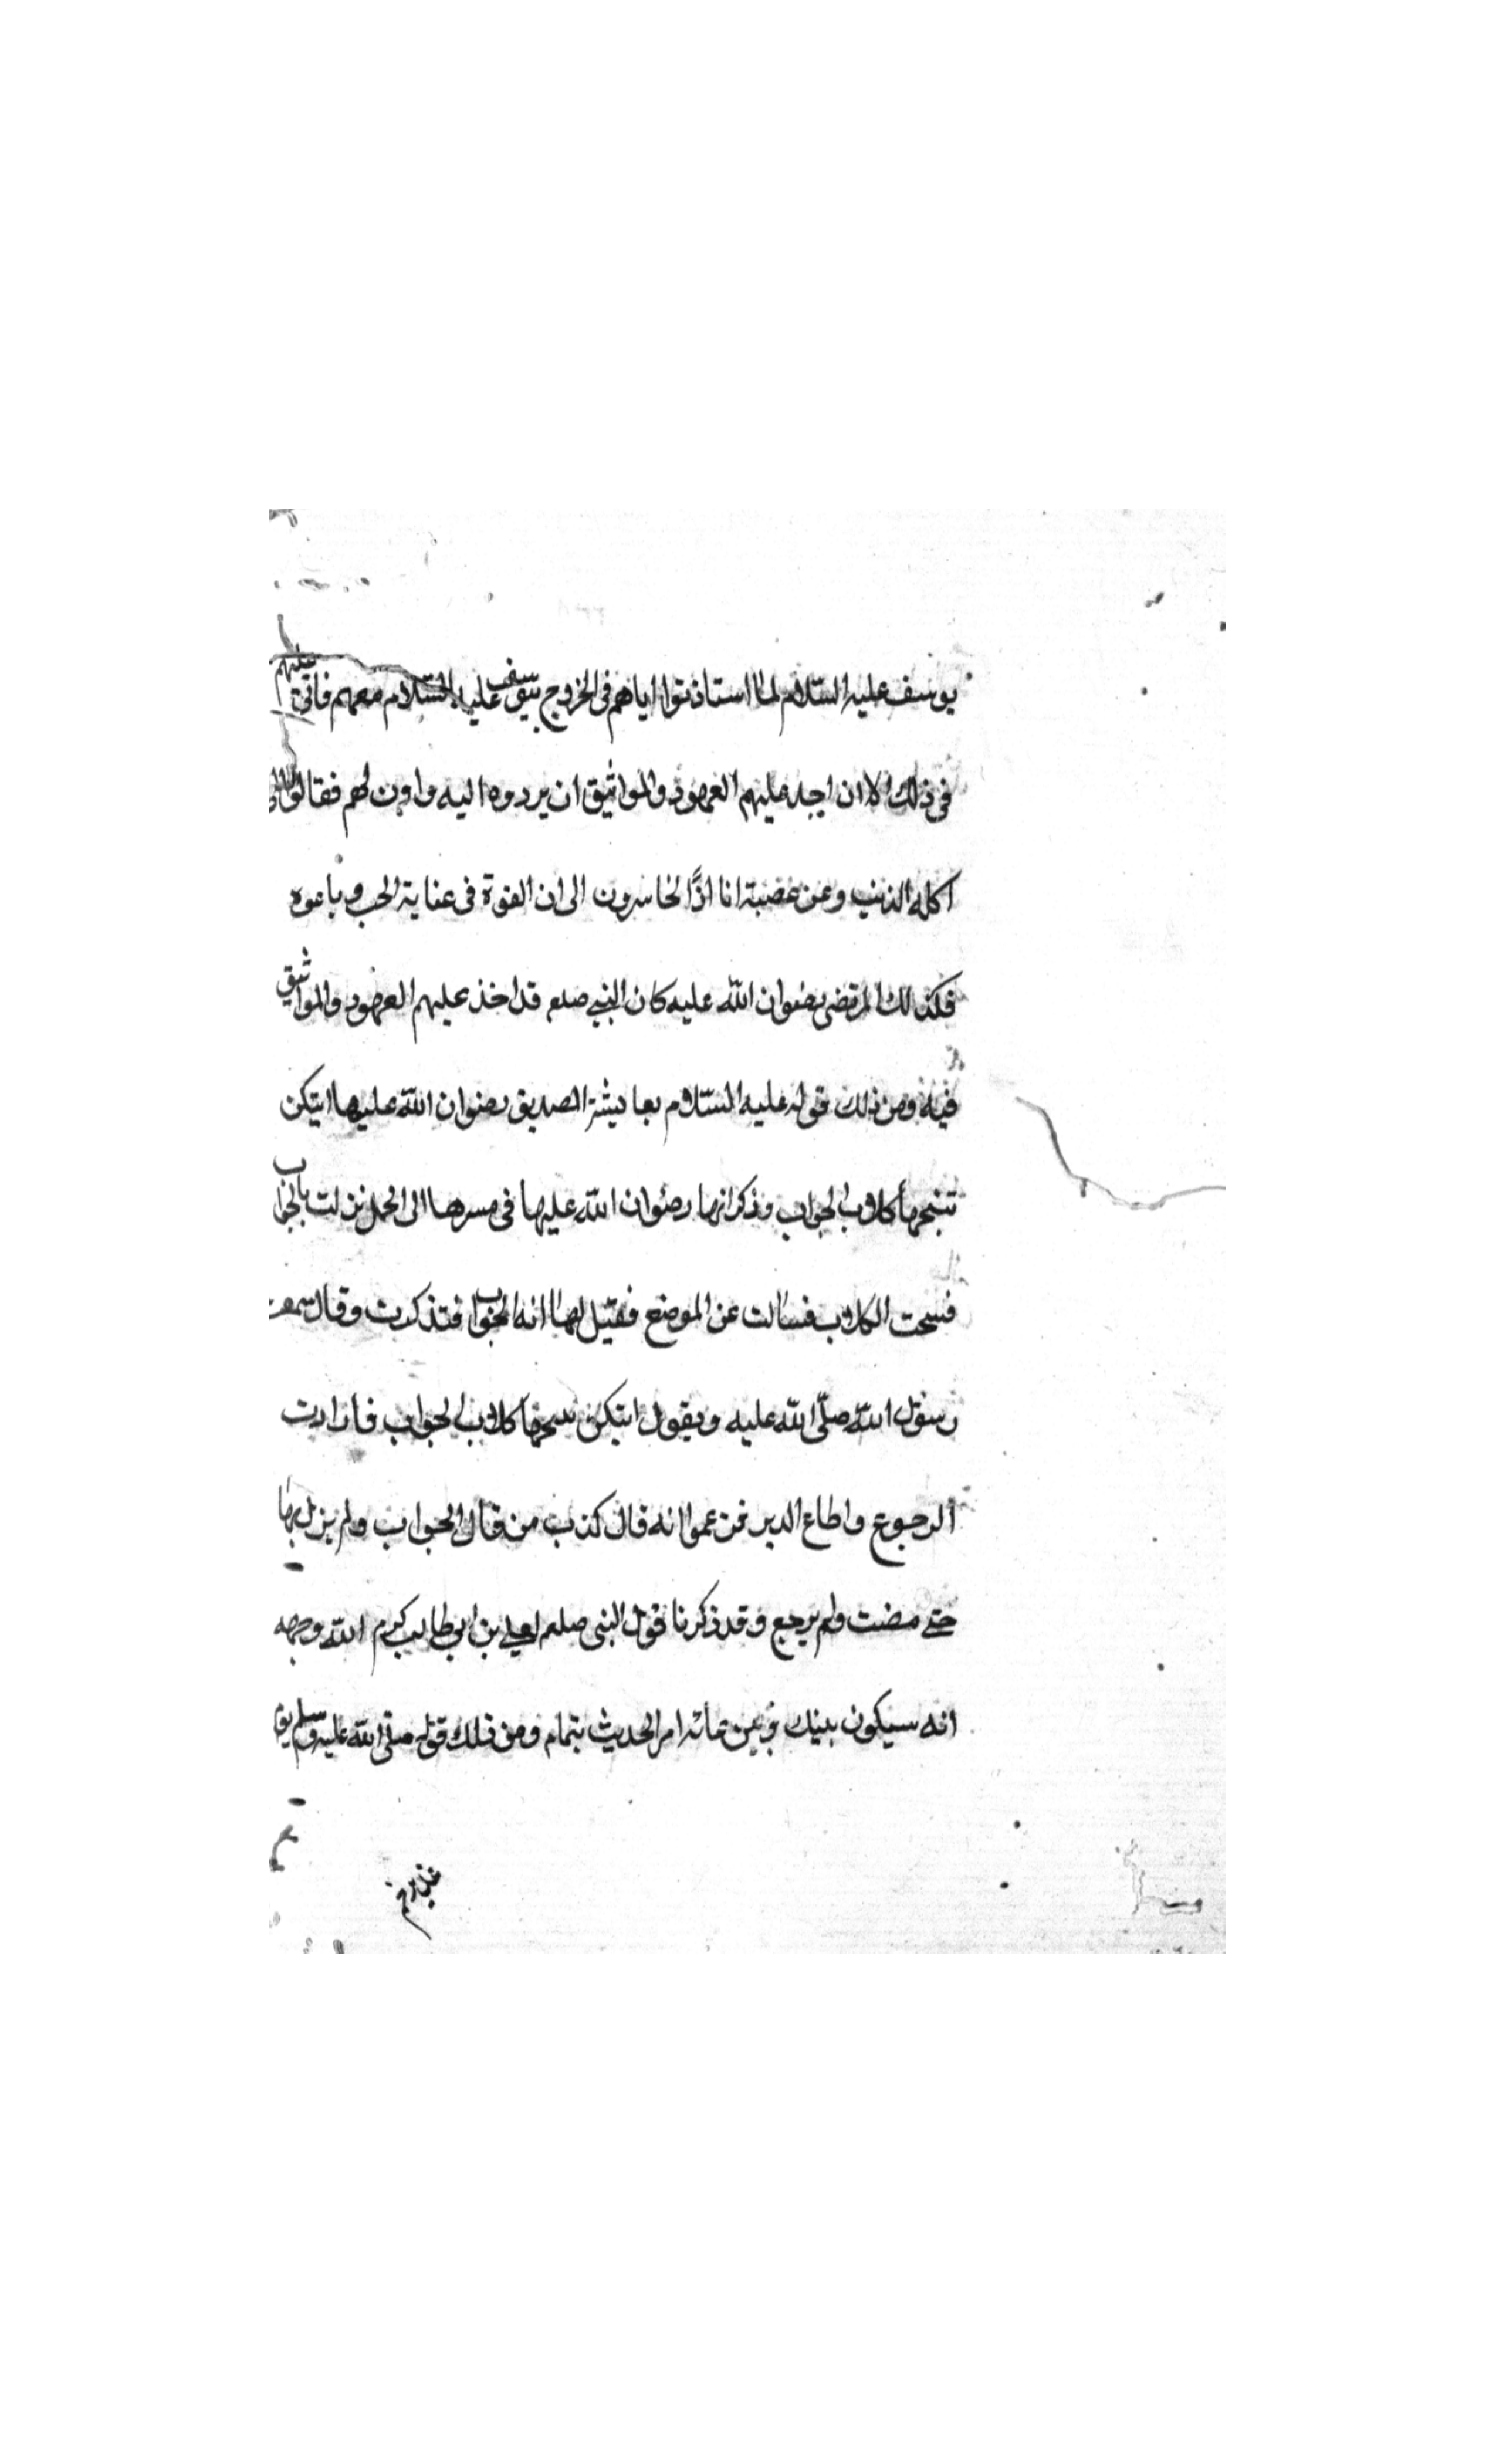 يوسف عليه السلام لما استاذنوا اياهم في الخروج بيوسف عليه السلام معهم فاتى عليهم
في ذلك الا ان اجد عليهم العهود والمواثيق ان يردوه اليه واوين لهم فقالوا
اكله الذئب وعن عصبة انا اذًا لخاسرون الى ان القوة في عناية الجب وباعوه
فكذلك المرتضى رضوان الله عليه كان النبي صلعم قد اخذ عليهم العهود والمواثيق
فيه ومن ذلك قوله عليه السلام بعايشة الصديق رضوان الله عليها ايتكن
تنبحها كلاب الحواب وذكر انها رضوان الله عليها في مسرها الى الجمل نزلت بالحواب
فسحت الكلاب فسالت عن الموضع فقيل لها انه الحواب فتذكرت وقال سمعت
رسول الله صلى الله عليه ويقول ايتكن سحها كلاب الحواب فارادت
الرجوع واطاع الدير فمن عموا انه قال كذب من قال الحواب ولم يزل بها
حتى مضت ولم يرجع وقد ذكرنا قول النبي صلعم لعلي بن ابي طالب كرم الله وجهه
انه سيكون بينك وبين عائه امر الحديث بتمام ومن ذلك قوله صلى الله عليه وسلم يوم